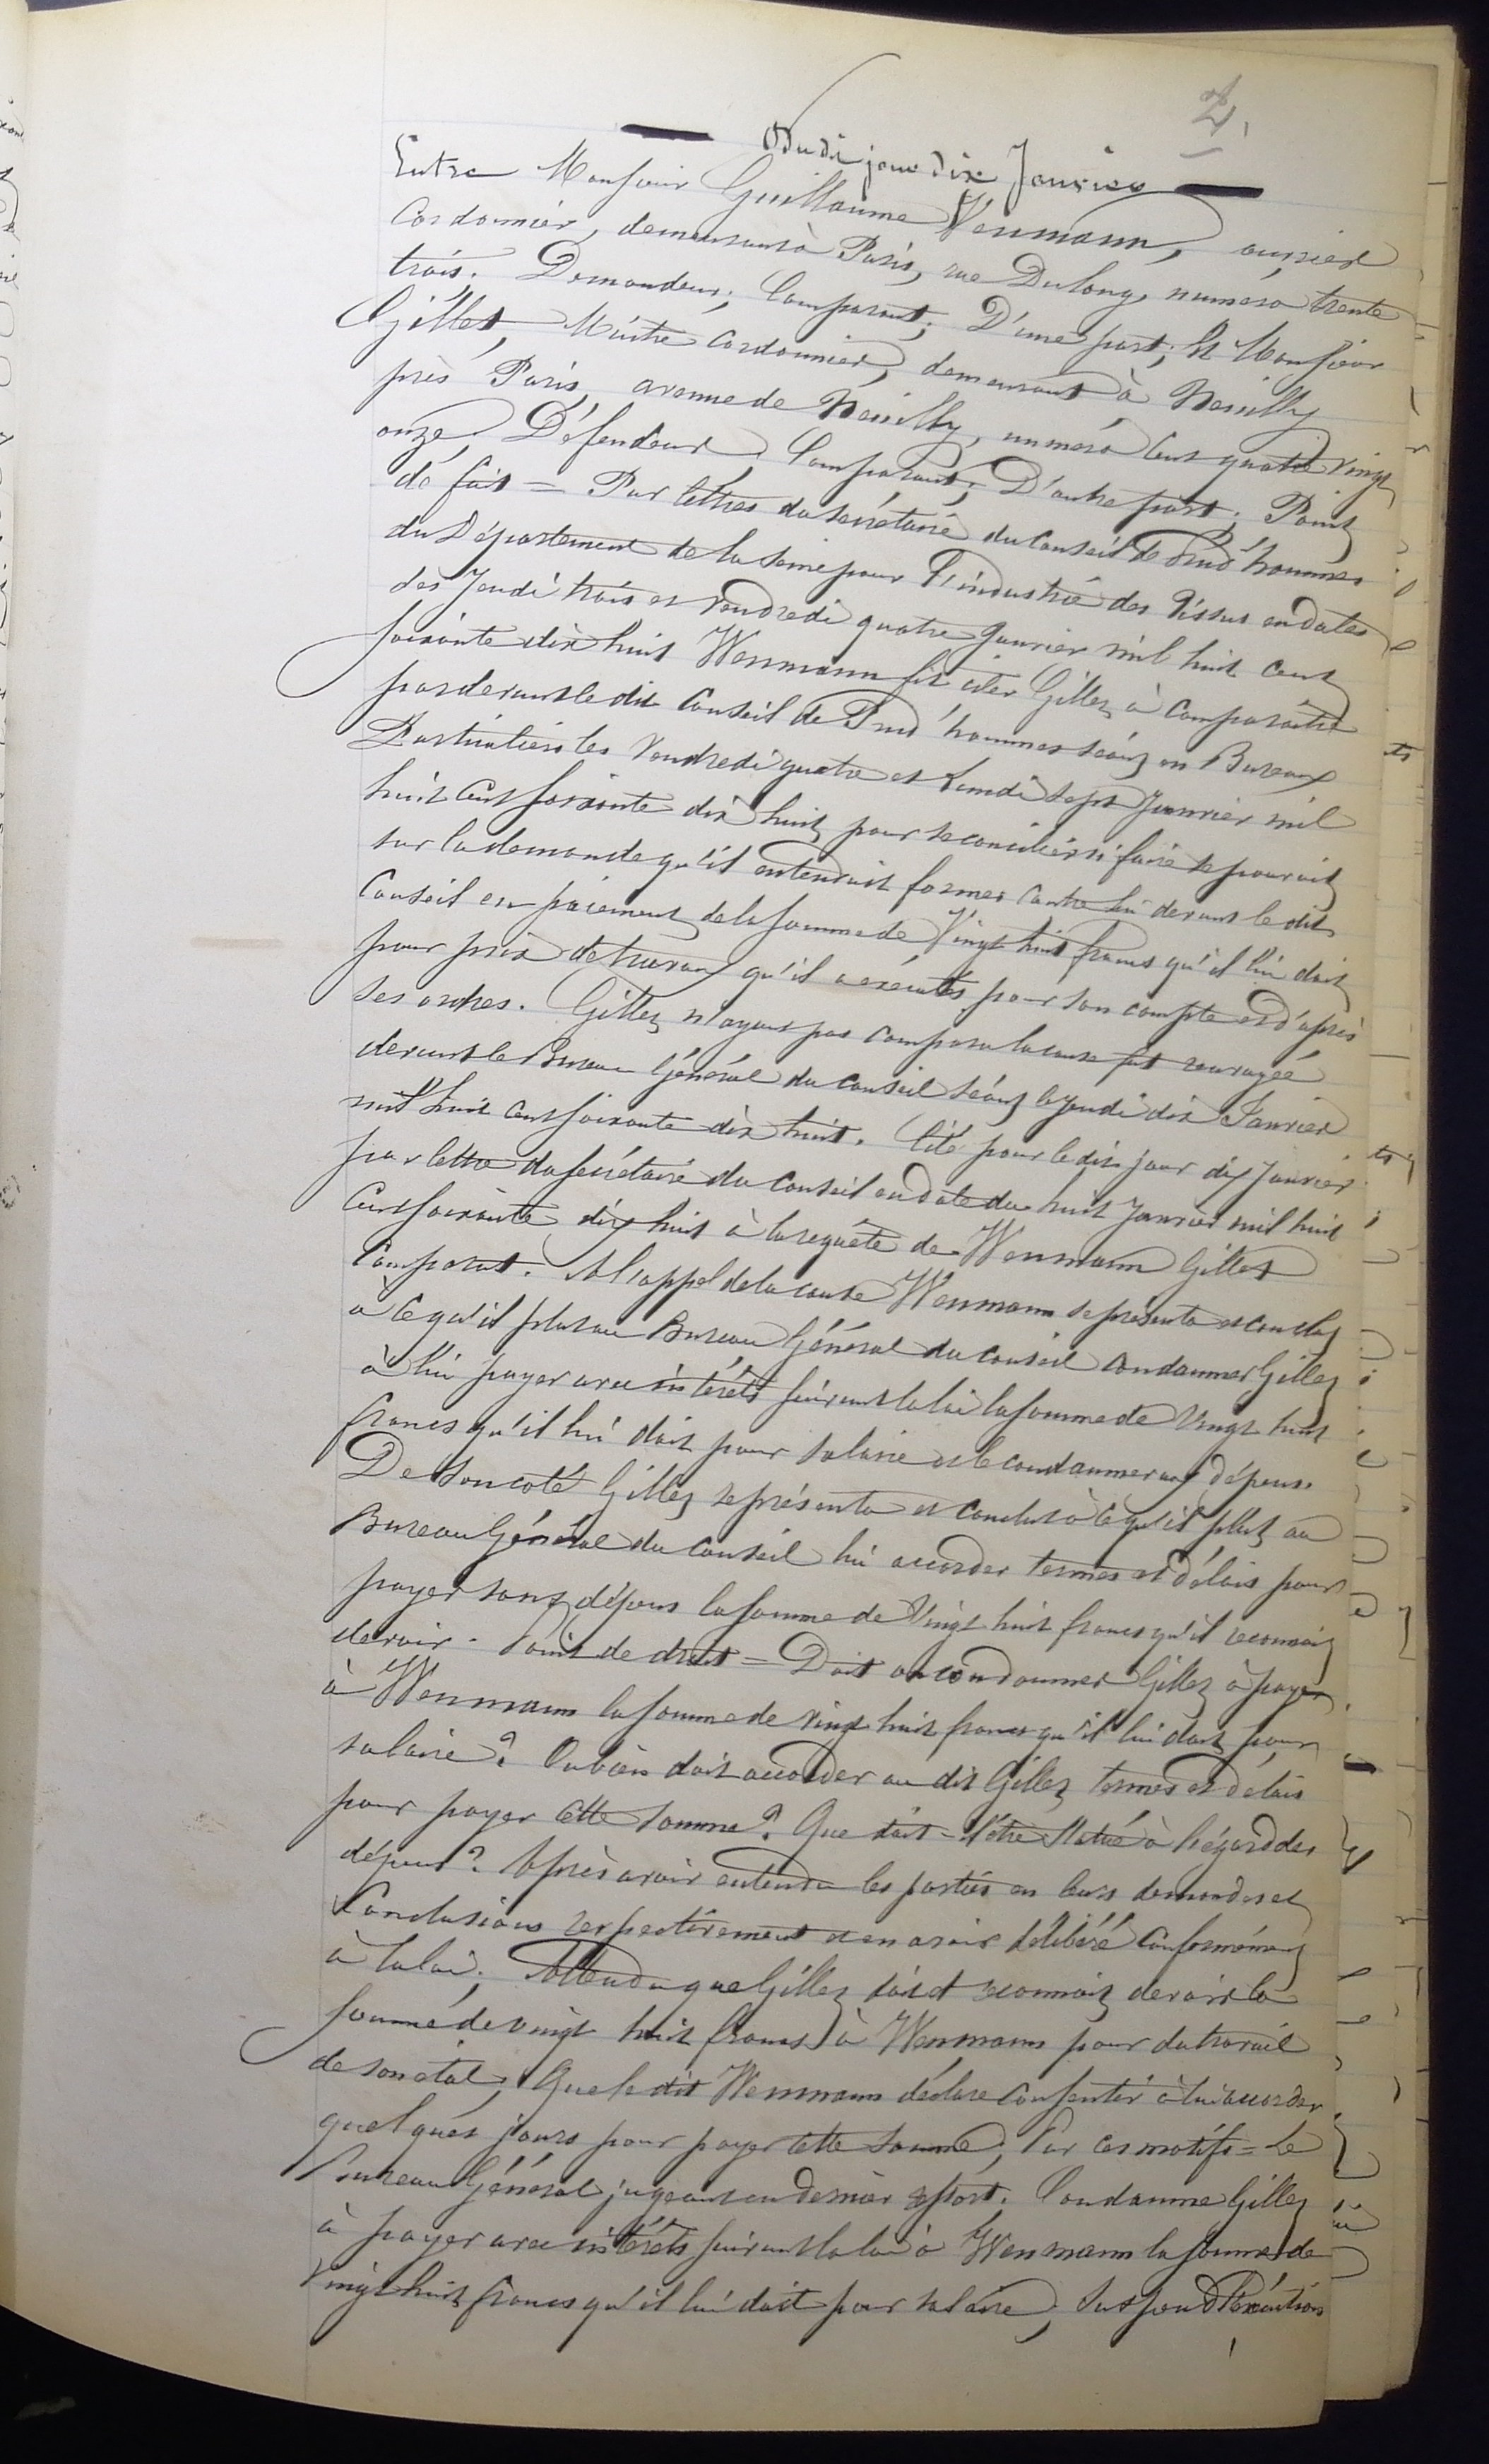 2
Du dit jour dix Janvier
Entre Monsieur Guillaume Wenmann, ouvrier
Cordonnier, demeurant à Paris, rue Dulong, numéro trente
trois. Demandeur; Comparant; D'une part; Et Monsieur
Gillet, Maître Cordonnier, demeurant à Neuilly
près Paris, avenue de Neuilly, numéro cent quatre vingt
onze Défendeur; Comparant; D'autre part; Point
de fait = Par lettres du secrétaire du Conseil de Prud'hommes
du Département de la Seine pour l'industrie des Tissus en dates
des Jeudi trois et Vendredi quatre Janvier mil huit cent
soixante dix huit Wenmann fit citer Gillet à comparaître
par devant le dit Conseil de Prud'hommes séant en Bureaux
Particuliers les Vendredi quatre et Lundi sept Janvier mil
huit cent soixante dix huit pour se concilier si faire se pouvait
sur la demande qu'il entendait former contre lui devant le dit
Conseil en paiement de la somme de Vingt huit francs qu'il lui doit
pour prix de travaux qu'il a exécutés pour son compte et d'après
ses ordres. Gillet n'ayant pas comparu la cause fut renvoyée
devant le Bureau Général du Conseil séant le Jeudi dix Janvier
mil huit cent soixante dix huit. Cité pour le dit jour dix Janvier
par lettre du secrétaire du Conseil en date du huit Janvier mil huit
cent soixante dix huit à la requête de Wenmann Gillet
comparut. A l'appel de la cause Wenmann se présenta et conclut
à ce qu'il plut au Bureau Général du Conseil condamner Gillet
à lui payer avec intérêts suivant la loi la somme de Vingt huit
francs qu'il lui doit pour salaire et le condamner aux dépens.
De son coté Gillet se présenta et conclut à ce qu'il plut au
Bureau Général du Conseil lui accorder termes et délais pour
payer sans dépens la somme de Vingt huit francs qu'il reconnait
devoir. Point de droit = Doit on condamner Gillet à payer
à Wenmann la somme de vingt huit francs qu'il lui doit pour
salaire? Ou bien doit accorder au dit Gillet termes et délais
pour payer cette somme? Que doit-il être statué à l'égard des
dépens? Après avoir entendu les parties en leurs demandes et
Conclusions respectivement et en avoir délibéré conformément
à la loi; Attendu que Gillet reconnait devoir la
somme de vingt huit francs à Wenmann pour du travail
de son état; Que le dit Wenmann déclare consentir à lui accorder
quelques jours pour payer cette somme; Par ces motifs = Le
Bureau Général jugeant en dernier ressort; Condamne Gillet
à payer avec intérêts suivant la loi à Wenmann la somme de
Vingt huit francs qu'il lui doit pour salaire; Suspend l'exécution